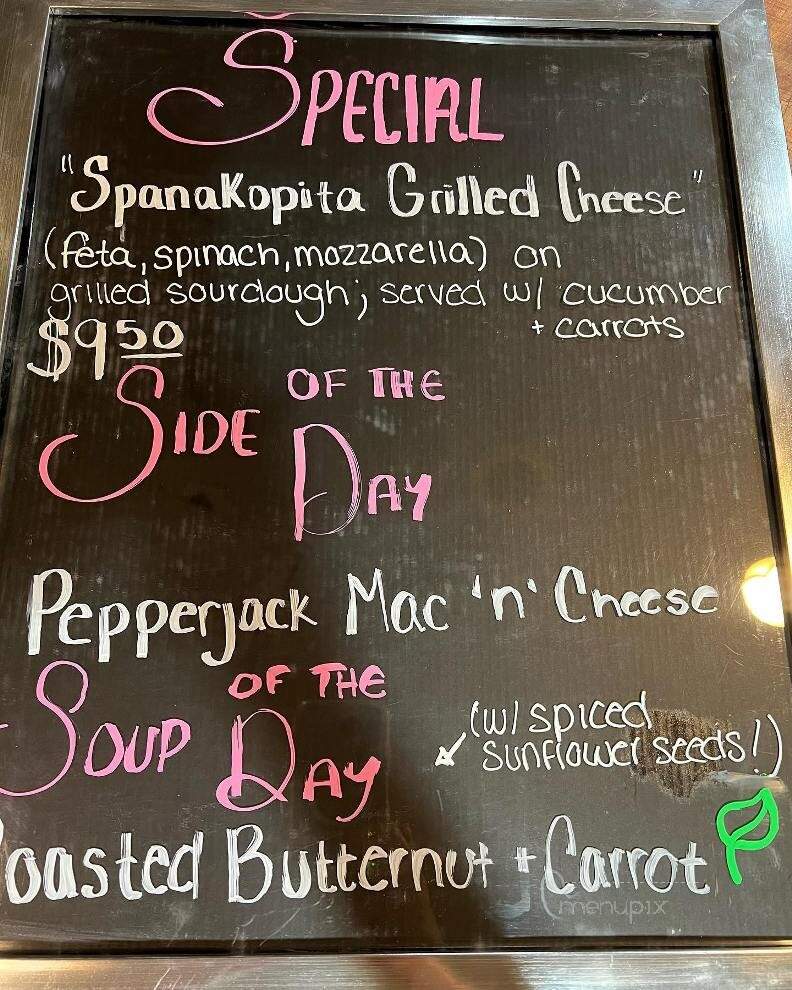 SPECIAL
"Spanakopita Grilled Cheese"
(feta, spinach, mozzarella) on
grilled sourdough; served w/ cucumber
+ carrots
$9 50
SIDE OF THE DAY
Pepperjack Mac 'n' Cheese
SOUP OF THE DAY
(w/ spiced
sunflower seeds!)
oasted Butternut + Carrot
menupix